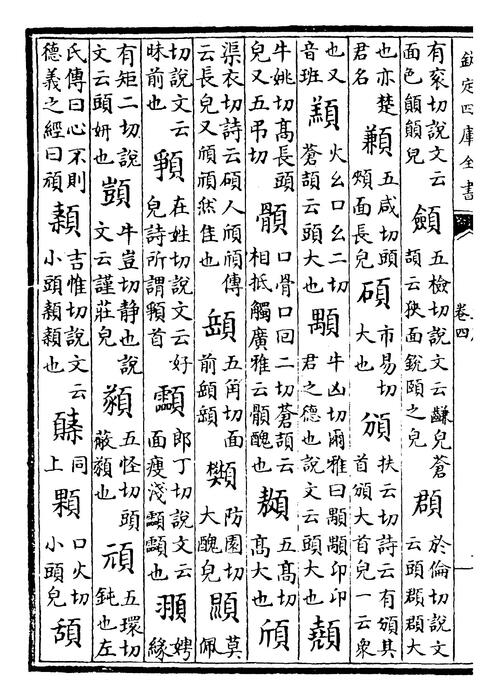 欽定四庫全書
卷四
有衮切說文云面色皃 顩 五檢切說文云䶢皃蒼頡云狹面銳頤之皃 頵 於倫切說文云頭頵頵大
也亦楚君名 五咸切頭頰面長皃 碩 市易切大也 頒 扶云切詩云有頒其首頒大首皃一云衆
也又音班 火幺口幺二切蒼頡云頭大也 顒 牛凶切爾雅曰顒顒卬卬君之德也說文云頭大也 顤
牛姚切髙長頭皃又五弔切 顝 口骨口回二切蒼頡云相抵觸廣雅云顝醜也 五髙切髙大也 頎
渠衣切詩云碩人頎頎傳云長皃又頎頎然佳也 五角切面前 防園切大醜皃 莫佩
切說文云昧前也 在姓切說文云好皃詩所謂首 郎丁切說文云面瘦淺也 頨 娉緣
有矩二切說文云頭妍也 顗 牛豈切静也說文云謹莊皃 五怪切頭蔽也 頑 五環切鈍也左
氏傳曰心不則德義之經曰頑 吉惟切說文云小頭也 同上 顆 口火切小頭皃 頢